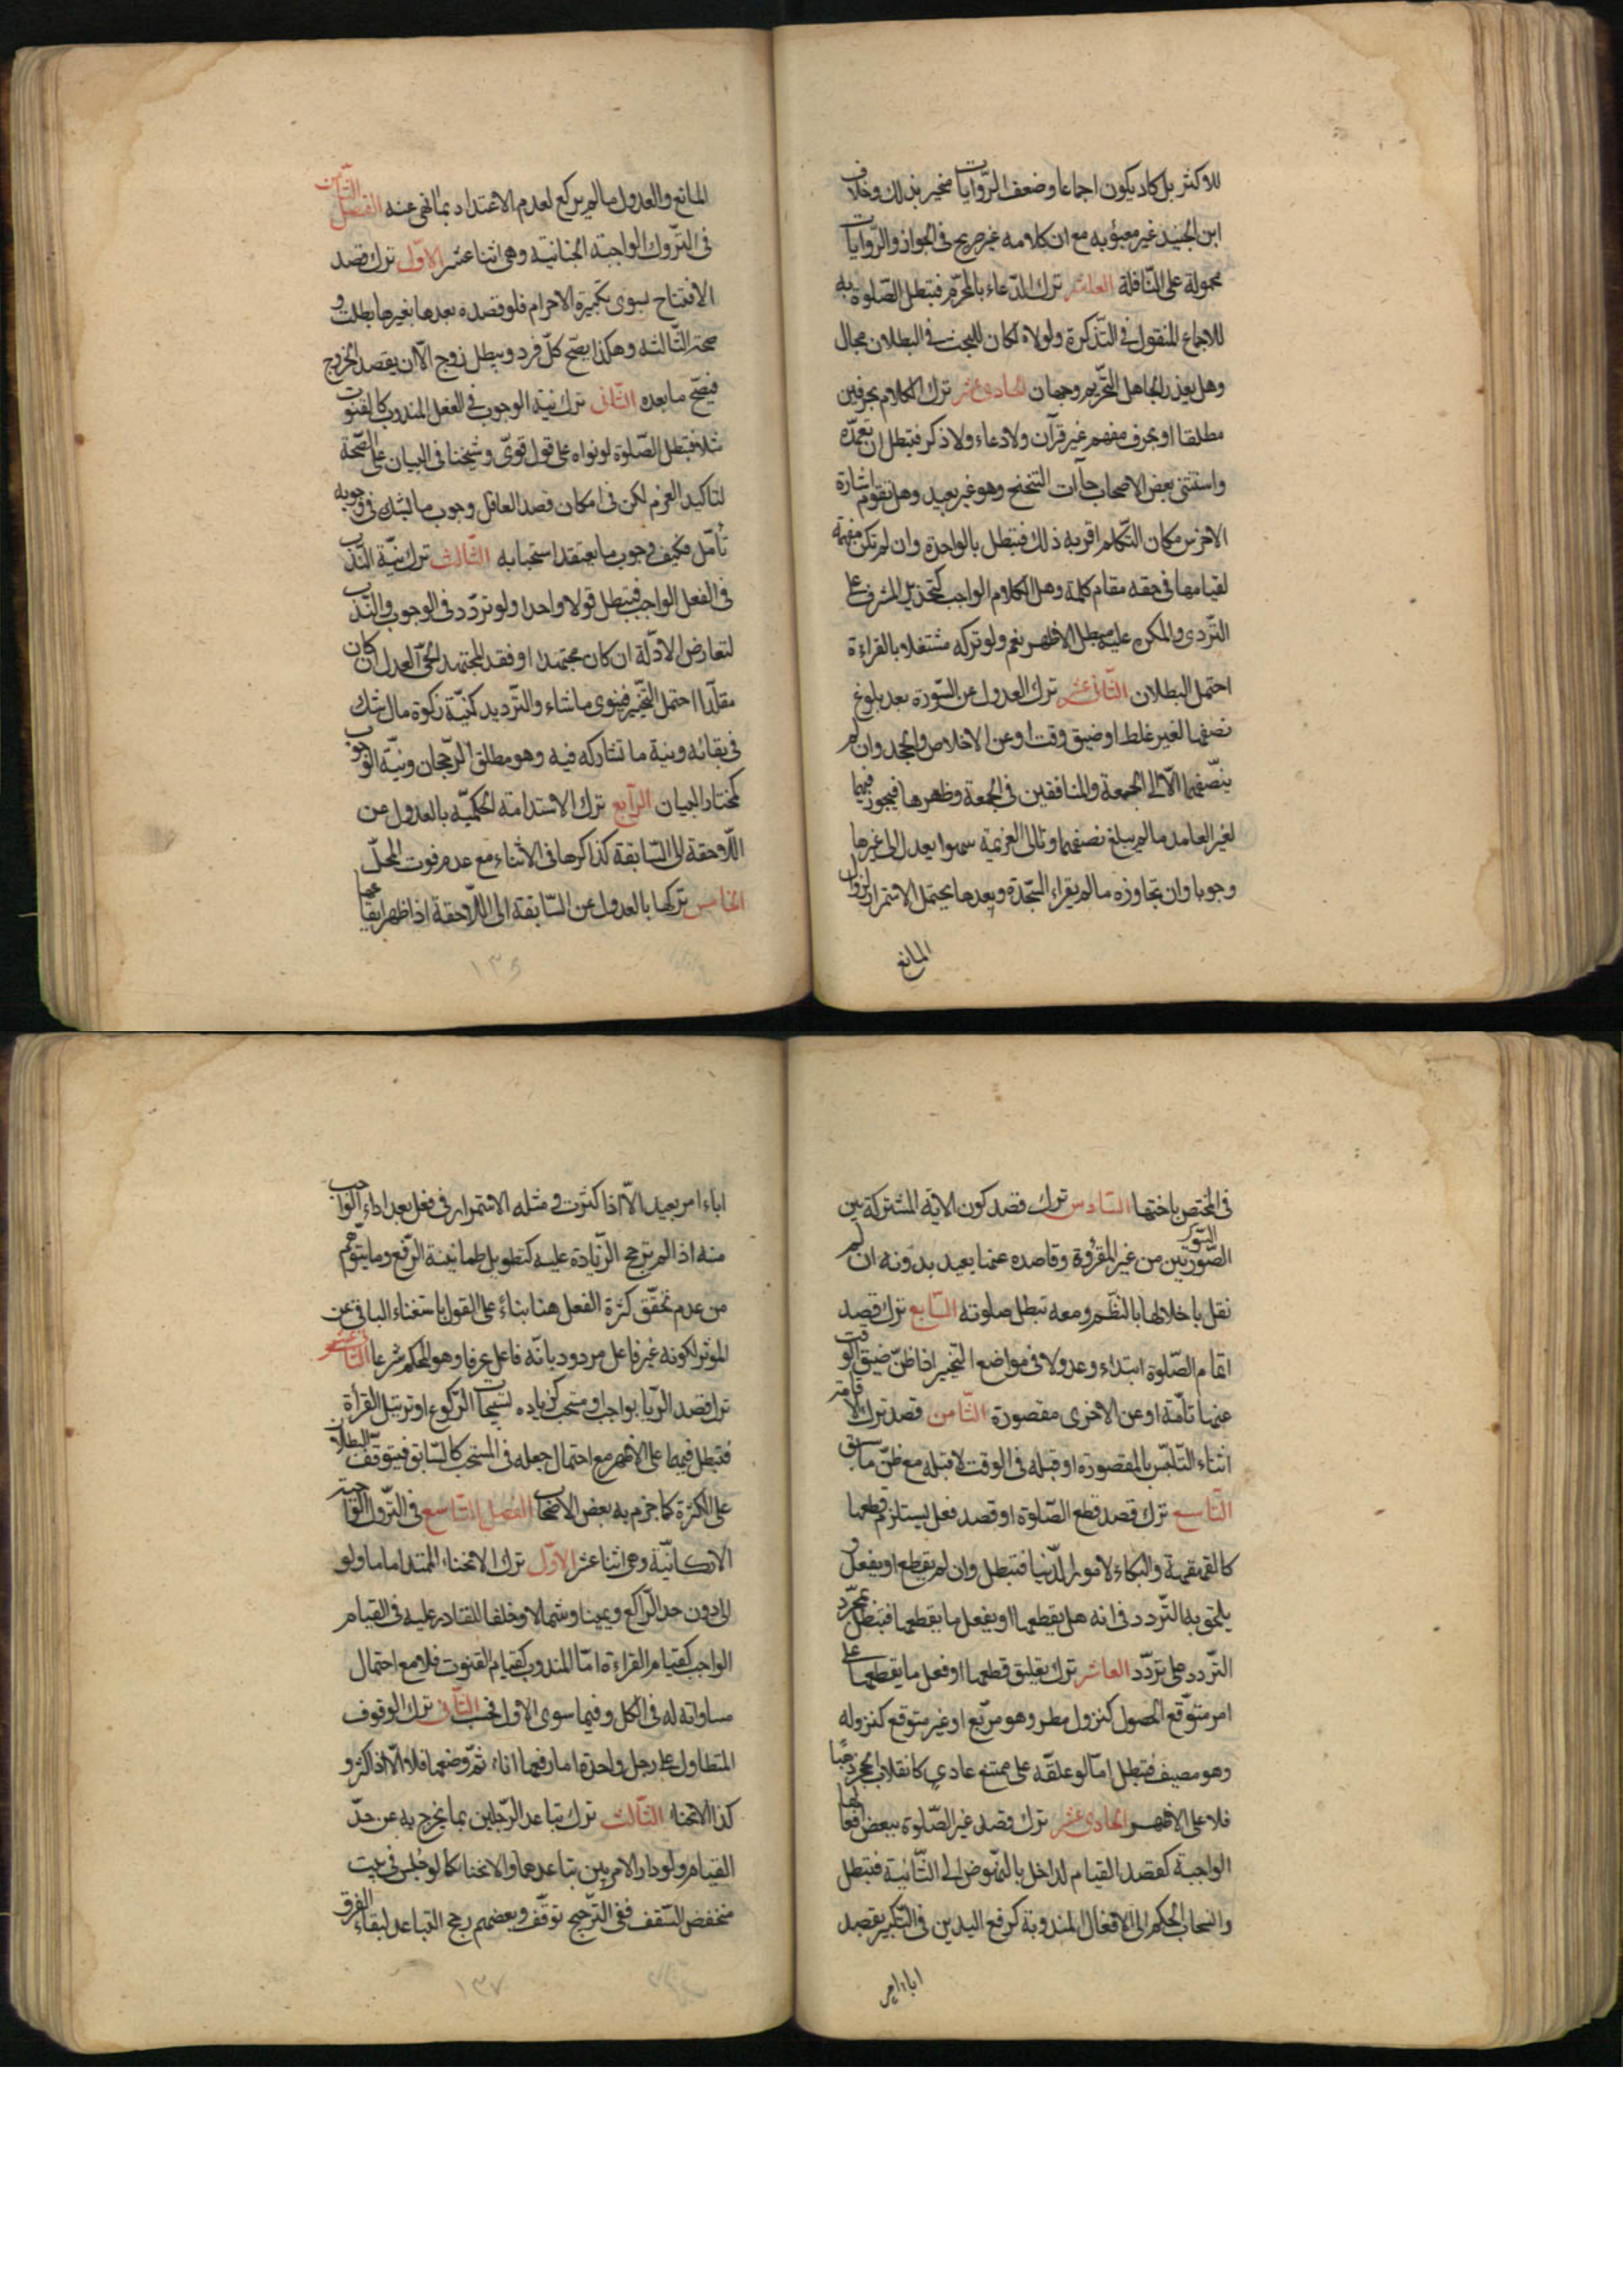 للاكثر بل كاد يكون اجماعا وضعف الرّوايات مخبر بذلك وخلاف
ابن الجنيد غير معبؤ به مع ان كلامه غير صريح فى الجواز والرّوايات
محمولة على النّافلة العاشر ترك الدّعاء بالمحرّم فتبطل الصّلوة به
للاجماع المنقول فى التّذكرة ولولاه لكان للبحث فى البطلان مجال
وهل يعذر الجاهل التّحريم وجهان الحادى عشر ترك الكلام بحرفين
مطلقا او بحرف مفهم غير قرآن ولا دعاء ولا ذكر فتبطل ان تعمّده
واستثنى بعض الاصحاب حآات التنحنح وهو غير بعيد وهل تقوم اشارة
الاخرس مكان التّكلم اقربه ذلك فتبطل بالواحدة وان لم تكن مفهمة
لقيامها فى حقه مقام كلمة وهل الكلام الواجب كتحذير المشرف على
التّردى والمكره عليه مبطل الاظهر نعم ولو تركه مشتغلا بالقراءة
احتمل البطلان الثّانى عشر ترك العدول عن السّورة بعد بلوغ
نصفها لغير غلط او ضيق وقت او عن الاخلاص والجحد وان لم
ينصّفهما الّا الى الجمعة والمنافقين فى الجمعة وظهرها فيجوز فيهما
لغير العامد ما لم يبلغ نصفهما وتالى العزيمة سهوا يعدل الى غيرها
وجوبا وان تجاوزه ما لم يقراء السّجدة وبعدها يحتمل الاستمرار لزوال
المانع
المانع والعدول ما لم يركع لعدم الاعتداد بما نهى عنه الفصل الثّامن
فى التّروك الواجبة الجنانيّة وهى اثنا عشر الاوّل ترك قصد
الافتتاح بسوى تكبيرة الاحرام فلو قصده بعدها بغيرها بطلت و
صحّت الثّالثة وهكذا يصحّ كلّ فرد ويبطل زوج الّا ان يقصد الخروج
فيصحّ ما بعده الثّانى ترك نيّة الوجوب فى الفعل المندوب كالقنوت
مثلا فتبطل الصّلوة لو نواه على قول قوىّ وشيخنا فى البيان على الصّحّة
لتاكيد العزم لكن فى امكان قصد العاقل وجوب ما يشك فى وجوبه
تأمّل فكيف وجوب ما يعتقد استحبابه الثّالث ترك نيّة النّدب
فى الفعل الواجب فتبطل قولا واحدا ولو تردّد فى الوجوب والنّدب
لتعارض الادّلة ان كان مجتهدا او فقد المجتهد الحىّ العدل ان كان
مقلّدا احتمل التّخيير فينوى ما شاء والتّرديد كنيّة زكوة مال شك
فى بقائه ونية ما تشاركه فيه وهو مطلق الرّجحان ونيّة الوجوب
كمختار البيان الرّابع ترك الاستدامة الحكميّه بالعدول من
اللّاحقة الى السّابقة كذاكرها فى الاثناء مع عدم فوت المحلّ
الخامس تركها بالعدول عن السّابقة الى اللّاحقة اذا ظهر ايقاعها
١٣٦
فى المختص باختها السّادس ترك قصد كون الآية المشتركة بين
السّور
الصّورتين من غير المقرؤة وقاصده عنها يعيد بدونه ان لم
نقل باخلالها بالنّظم ومعه تبطل صلوته السّابع ترك قصد
اتمام الصّلوة ابتداء وعدولا فى مواضع التّخيير اذا ظنّ ضيق الوقت
عنها تامّة او عن الاخرى مقصورة الثّامن قصد ترك الاقامة
اثناء التّلبّس بالمقصورة او قبله فى الوقت لا قبله مع ظنّ ما سبق
التّاسع ترك قصد قطع الصّلوة او قصد فعل يستلزم قطعها
كالقهقهة والبكاء لامور الدّنيا فتبطل وان لم يقطع او يفعل و
يلحق به التّردد فى انه هل يقطعها او يفعل ما يقطعها فتبطل بمجرّد
التّردد على تردّد العاشر ترك تعليق قطعها او فعل ما يقطعها على
امر متوّقع الحصول كنزول مطر وهو مربّع او غير متوقع كنزوله
وهو مصيف فتبطل امّا لو علقّه على ممتنع عادي كانقلاب الحجر ذهبا
فلا على الاظهر الحادى عشر ترك قصد غير الصّلوة ببعض افعالها
الواجبة كقصد القيام لداخل بالنّهوض الى الثّانية فتبطل
وانسحاب الحكم الى الافعال المندوبة كرفع اليدين فى التّكبير بقصد
اباء امر
اباء امر بعيد الّا اذا كثرت ومثله الاستمرار فى فعل بعد اداء الواجب
منه اذا لم يترجح الزّيادة عليه كتطويل طمانينة الرّفع وما يتوّهم
من عدم تحقّق كثرة الفعل هنا بناءً على القول باستغناء الباقى عن
المؤثر لكونه غير فاعل مردود بانّه فاعل عرفا وهو المحكم شرعا الثّانى عشر
ترك قصد الرّيا بواجب او مستحب كزياده تسبيحات الرّكوع او ترتيل القرأة
فتبطل فيهما على الاظهر مع احتمال جعله فى المستحب كالسّابق فيتوقّف البطلان
على الكثرة كما جزم به بعض الاصحاب الفصل التّاسع فى التّروك الواجبة
الاركانيّة وهى اثنا عشر الاوّل ترك الانحناء الممتد اماما ولو
الى دون حد الرّاكع ويمينا وشمالا وخلفا للقادر عليه فى القيام
الواجب كقيام القراءة امّا المندوب كقيام القنوت فلا مع احتمال
مساواته له فى الكل وفيما سوى الاول فحسب الثّانى ترك الوقوف
المتطاول على رجل واحدة اما رفعها اناء ثمّ وضعها فلا الّا اذا كثر و
كذا الانحناء الثّالث ترك تباعد الرّجلين بما يخرج به عن حدّ
القيام ولو دار الامر بين تباعدهما والانحناء كما لو حبس فى بيت
منخفض السّقف ففى التّرجيح توقّف وبعضهم رجح التباعد لبقاء الفرق
١٣٧